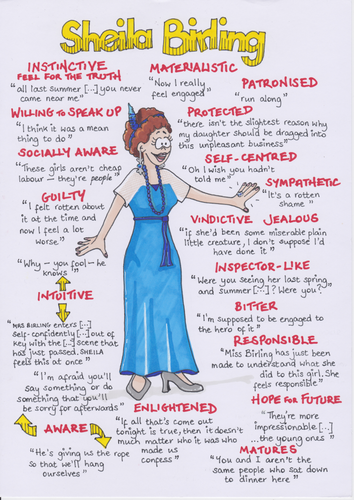 Sheila Birling
INSTINCTIVE
FEEL FOR THE TRUTH
"all last summer [...] you never
came near me."
WILLING TO SPEAK UP
"I think it was a mean
thing to do"
SOCIALLY AWARE
"These girls aren't cheap
labour – they're people"
GUILTY
"I felt rotten about
it at the time and
now I feel a lot
worse"
"Why – you fool – he
knows"
INTUITIVE
"MRS BIRLING enters [...]
self-confidently [...] out of
key with the [...] scene that
has just passed. SHEILA
feels this at once"
"I'm afraid you'll
say something or do
something that you'll
be sorry for afterwards"
AWARE
"He's giving us the rope
so that we'll hang
ourselves"
MATERIALISTIC
"Now I really
feel engaged"
PATRONISED
"run along"
PROTECTED
"there isn't the slightest reason why
my daughter should be dragged into
this unpleasant business"
SELF-CENTRED
"Oh I wish you hadn't
told me"
SYMPATHETIC
"It's a rotten
shame"
VINDICTIVE JEALOUS
"if she'd been some miserable plain
little creature, I don't suppose I'd
have done it"
INSPECTOR-LIKE
"Were you seeing her last spring
and summer [...]? Were you?"
BITTER
"I'm supposed to be engaged
to the hero of it"
RESPONSIBLE
"Miss Birling has just been
made to understand what she
did to this girl. She
feels responsible"
HOPE FOR FUTURE
"They're more
impressionable [...]
...the young ones"
ENLIGHTENED
"If all that's come out
tonight is true, then it doesn't
much matter who it was who
made us
confess"
MATURES
"You and I aren't the
same people who sat down
to dinner here"